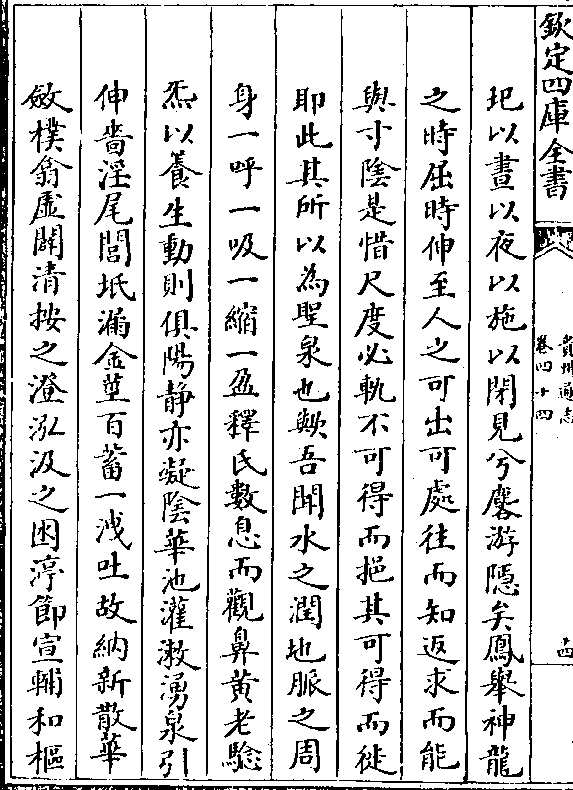 欽定四庫全書
貴州通志
卷四十四
十四
圯以晝以夜以施以閉見兮麏游隱矣鳳舉神龍
之時屈時伸至人之可出可處往而知返求而能
與寸陰是惜尺度必軌不可得而挹其可得而徙
耶此其所以為聖泉也歟吾聞水之潤地脈之周
身一呼一吸一縮一盈釋氏數息而觀鼻黃老驗
炁以養生動則俱陽靜亦凝陰華池灌漱湧泉引
伸嗇淫尾閭坻漏金莖百蓄一洩吐故納新散華
斂樸翕虛闢清按之澄泓汲之困渟節宣輔和樞